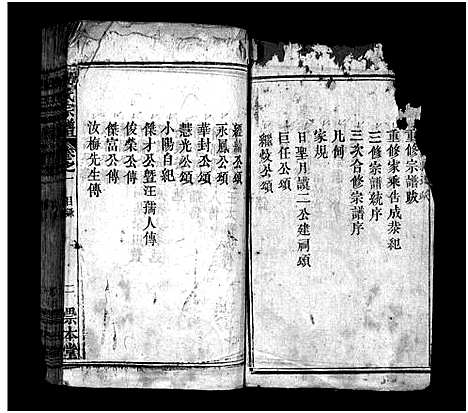 重修宗譜跋
重修家乘告成恭紀
三修宗譜統序
三次合修宗譜序
凡例
家規
日聖月讀二公建祠頌
巨任公頌
經歧公頌
經綸公頌
永鳳公頌
華封公頌
慧光公頌
小陽自紀
傑才公暨汪孺人傳
俊榮公傳
傑富公傳
汝梅先生傳
目錄
二
本堂